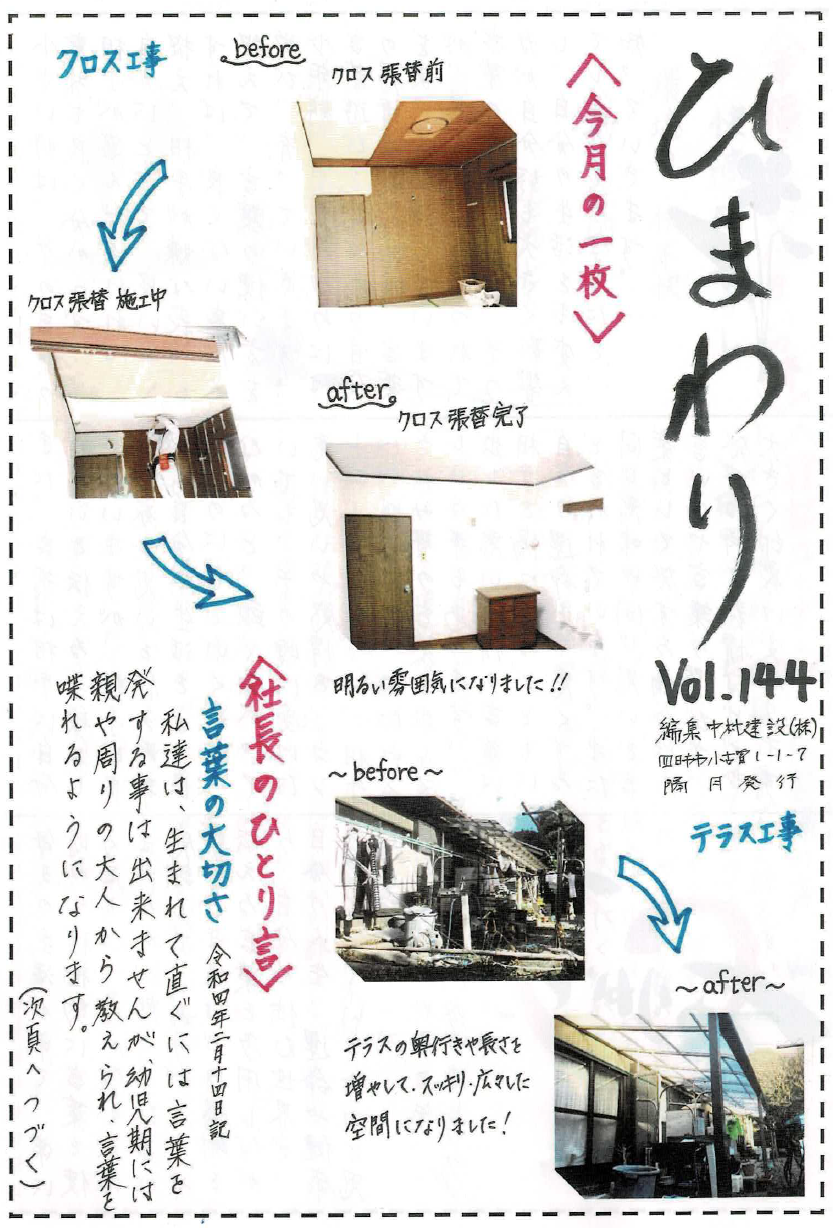 ひまわり
Vol.144
編集 中村建設(株)
四日市市小古曽1-1-7
隔月発行
〈今月の一枚〉
クロス工事
before
クロス張替前
クロス張替 施工中
after
クロス張替完了
明るい雰囲気になりました!!
テラス工事
~before~
~after~
テラスの奥行きや長さを
増やして、スッキリ・広々した
空間になりました!
〈社長のひとり言〉
言葉の大切さ
令和四年二月十四日記
私達は、生まれて直ぐには言葉を
発する事は出来ませんが、幼児期には
親や周りの大人から教えられ、言葉を
喋れるようになります。
(次頁へつづく)